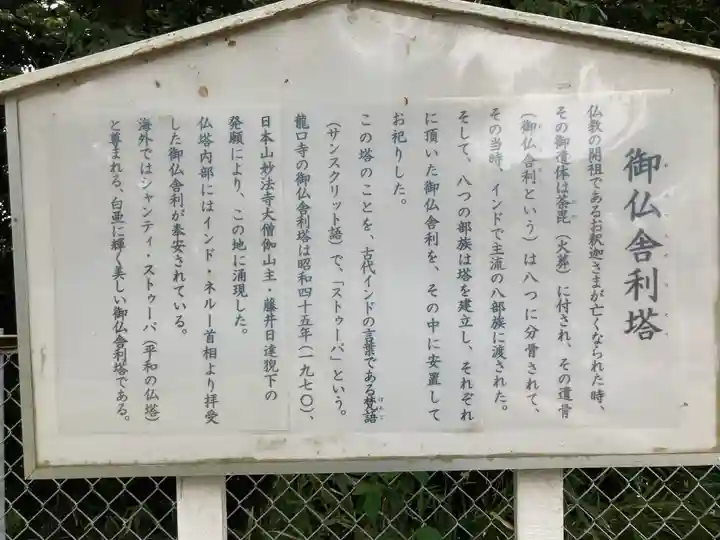 御仏舎利塔
仏教の開祖であるお釈迦さまが亡くなられた時、
その御遺体は荼毘(火葬)に付され、その遺骨
(御仏舎利という)は八つに分骨されて、
その当時、インドで主流の八部族に渡された。
そして、八つの部族は塔を建立し、それぞれ
に頂いた御仏舎利を、その中に安置して
お祀りした。
この塔のことを、古代インドの言葉である梵語
(サンスクリット語)で、「ストゥーパ」という。
龍口寺の御仏舎利塔は昭和四十五年(一九七〇)、
日本山妙法寺大僧伽山主・藤井日達猊下の
発願により、この地に涌現した。
仏塔内部にはインド・ネルー首相より拝受
した御仏舎利が奉安されている。
海外ではシャンティ・ストゥーパ(平和の仏塔)
と尊まれる、白亜に輝く美しい御仏舎利塔である。